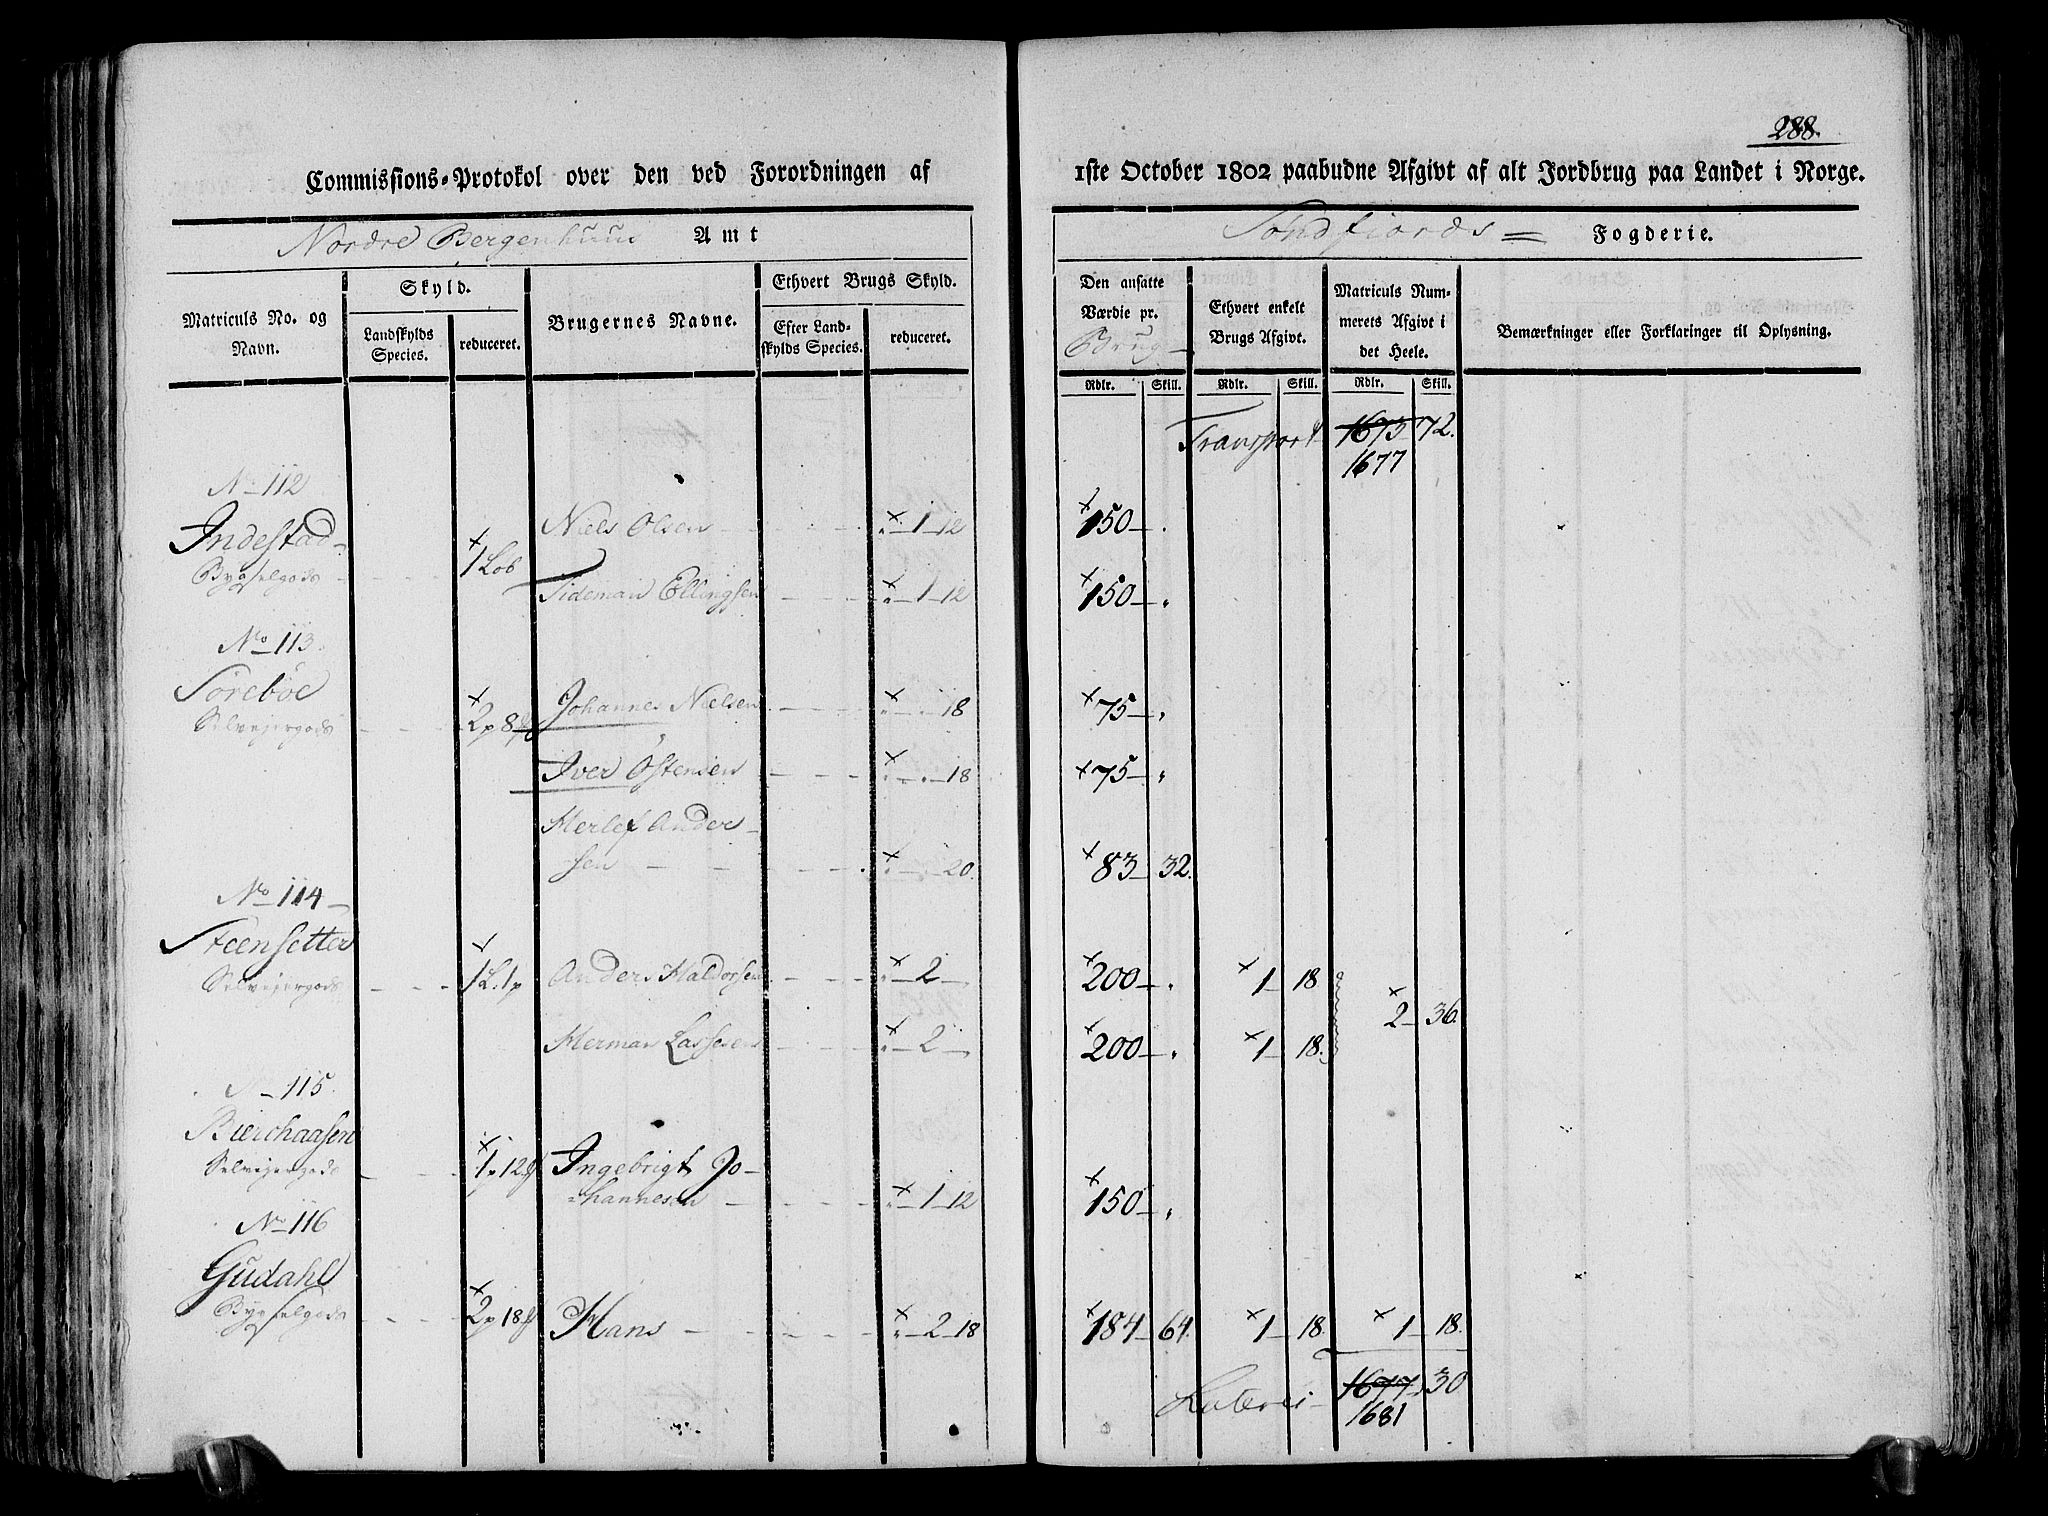 288.
Commissions-Protokol over den ved Forordningen af 1ste October 1802 paabudne Afgivt af alt Jordbrug paa Landet i Norge.
Nordre Bergenhuus Amt Søndfiords Fogderie.
Matriculs No. og Navn.
Skyld.
Landskylds Species.
reduceret.
Brugernes Navne.
Ethvert Brugs Skyld.
Efter Landskylds Species.
reduceret.
Den ansatte Værdie pr. Brug
Ethvert enkelt Brugs Afgivt.
Matriculs Nummerets Afgivt i det Heele.
Bemærkninger eller Forklaringer til Oplysning.
Rdlr. Skill. Rdlr. Skill. Rdlr. Skill.
Transport 1675 72.
1677
No 112
Indestad
Bygselgods 1 Løb
Niels Olsen " 1 12 150 "
Tideman Ellingsen " 1 12 150 "
No 113.
Sørebøe
Selvejergods 2 p 8 
Johannes Nielsen " " 18 75 "
Iver Østensen " " 18 75 "
Herlef Ander-
sen " " 20. 83 32.
No 114
Steensetter
Selvejergods 1 L. 1 p
Anders Haldorsen " 2 200 " 1 18
2 36.
Herman Lassesen " 2 200 " 1 18.
No 115.
Bierchaasen
Selvejergods 1 p 12
Ingebrigt Jo-
hannesen " 1 12 150 "
No 116
Gudahl
Bygselgods 2 p 18
Hans " 2 18 184 64. 1 18. 1 18.
Lateris 1677 30
1681